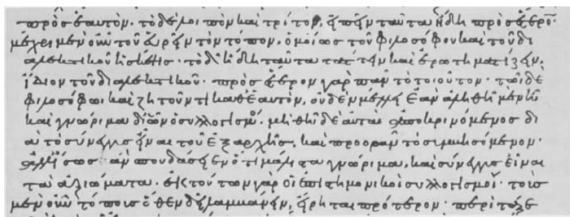 πρὸς ἑαυτόν· τὸ δὲ λοιπὸν καὶ τρίτον, εἰπεῖν ταῦτα ἤδη πρὸς ἕτερο͂·
μέχρι μὲν οὖν τοῦ εὑρεῖν τὸν τόπον, ὁμοίως τοῦ φιλοσόφου καὶ τοῦ δι
αλεκτικοῦ ἡ σκέψις· τὸ δ' ἤδη ταῦτα τάττειν καὶ ἐρωτηματίζειν,
ἴδιον τοῦ διαλεκτικοῦ· πρὸς ἕτερον γὰρ πᾶν τὸ τοιοῦτον· τῶι δὲ
φιλοσόφωι καὶ ζητοῦντι καθ' ἑαυτὸν, οὐδὲν μέλει ἐὰν ἀληθῆ μὲν ἦι
καὶ γνώριμα δι' ὧν ὁ συλλογισμός, μὴ θῆι δ' αὐτὰ ὁ ἀποκρινόμενος δι
ὰ τὸ σύνεγγυς εἶναι τοῦ ἐξ ἀρχῆς, καὶ προορᾶν τὸ συμβησόμενον·
ἀλλ' ἴσως κἂν σπουδάσειεν ὅτι μάλιστα γνώριμα, καὶ σύνεγγυς εἶναι
τὰ ἀξιώματα· ἐκ τούτων γὰρ οἱ ἐπιστημονικοὶ συλλογισμοί· τοὺς
μὲν οὖν τόπους ὅθεν δεῖ λαμβάνειν, εἴρηται πρότερον· περὶ τάξε